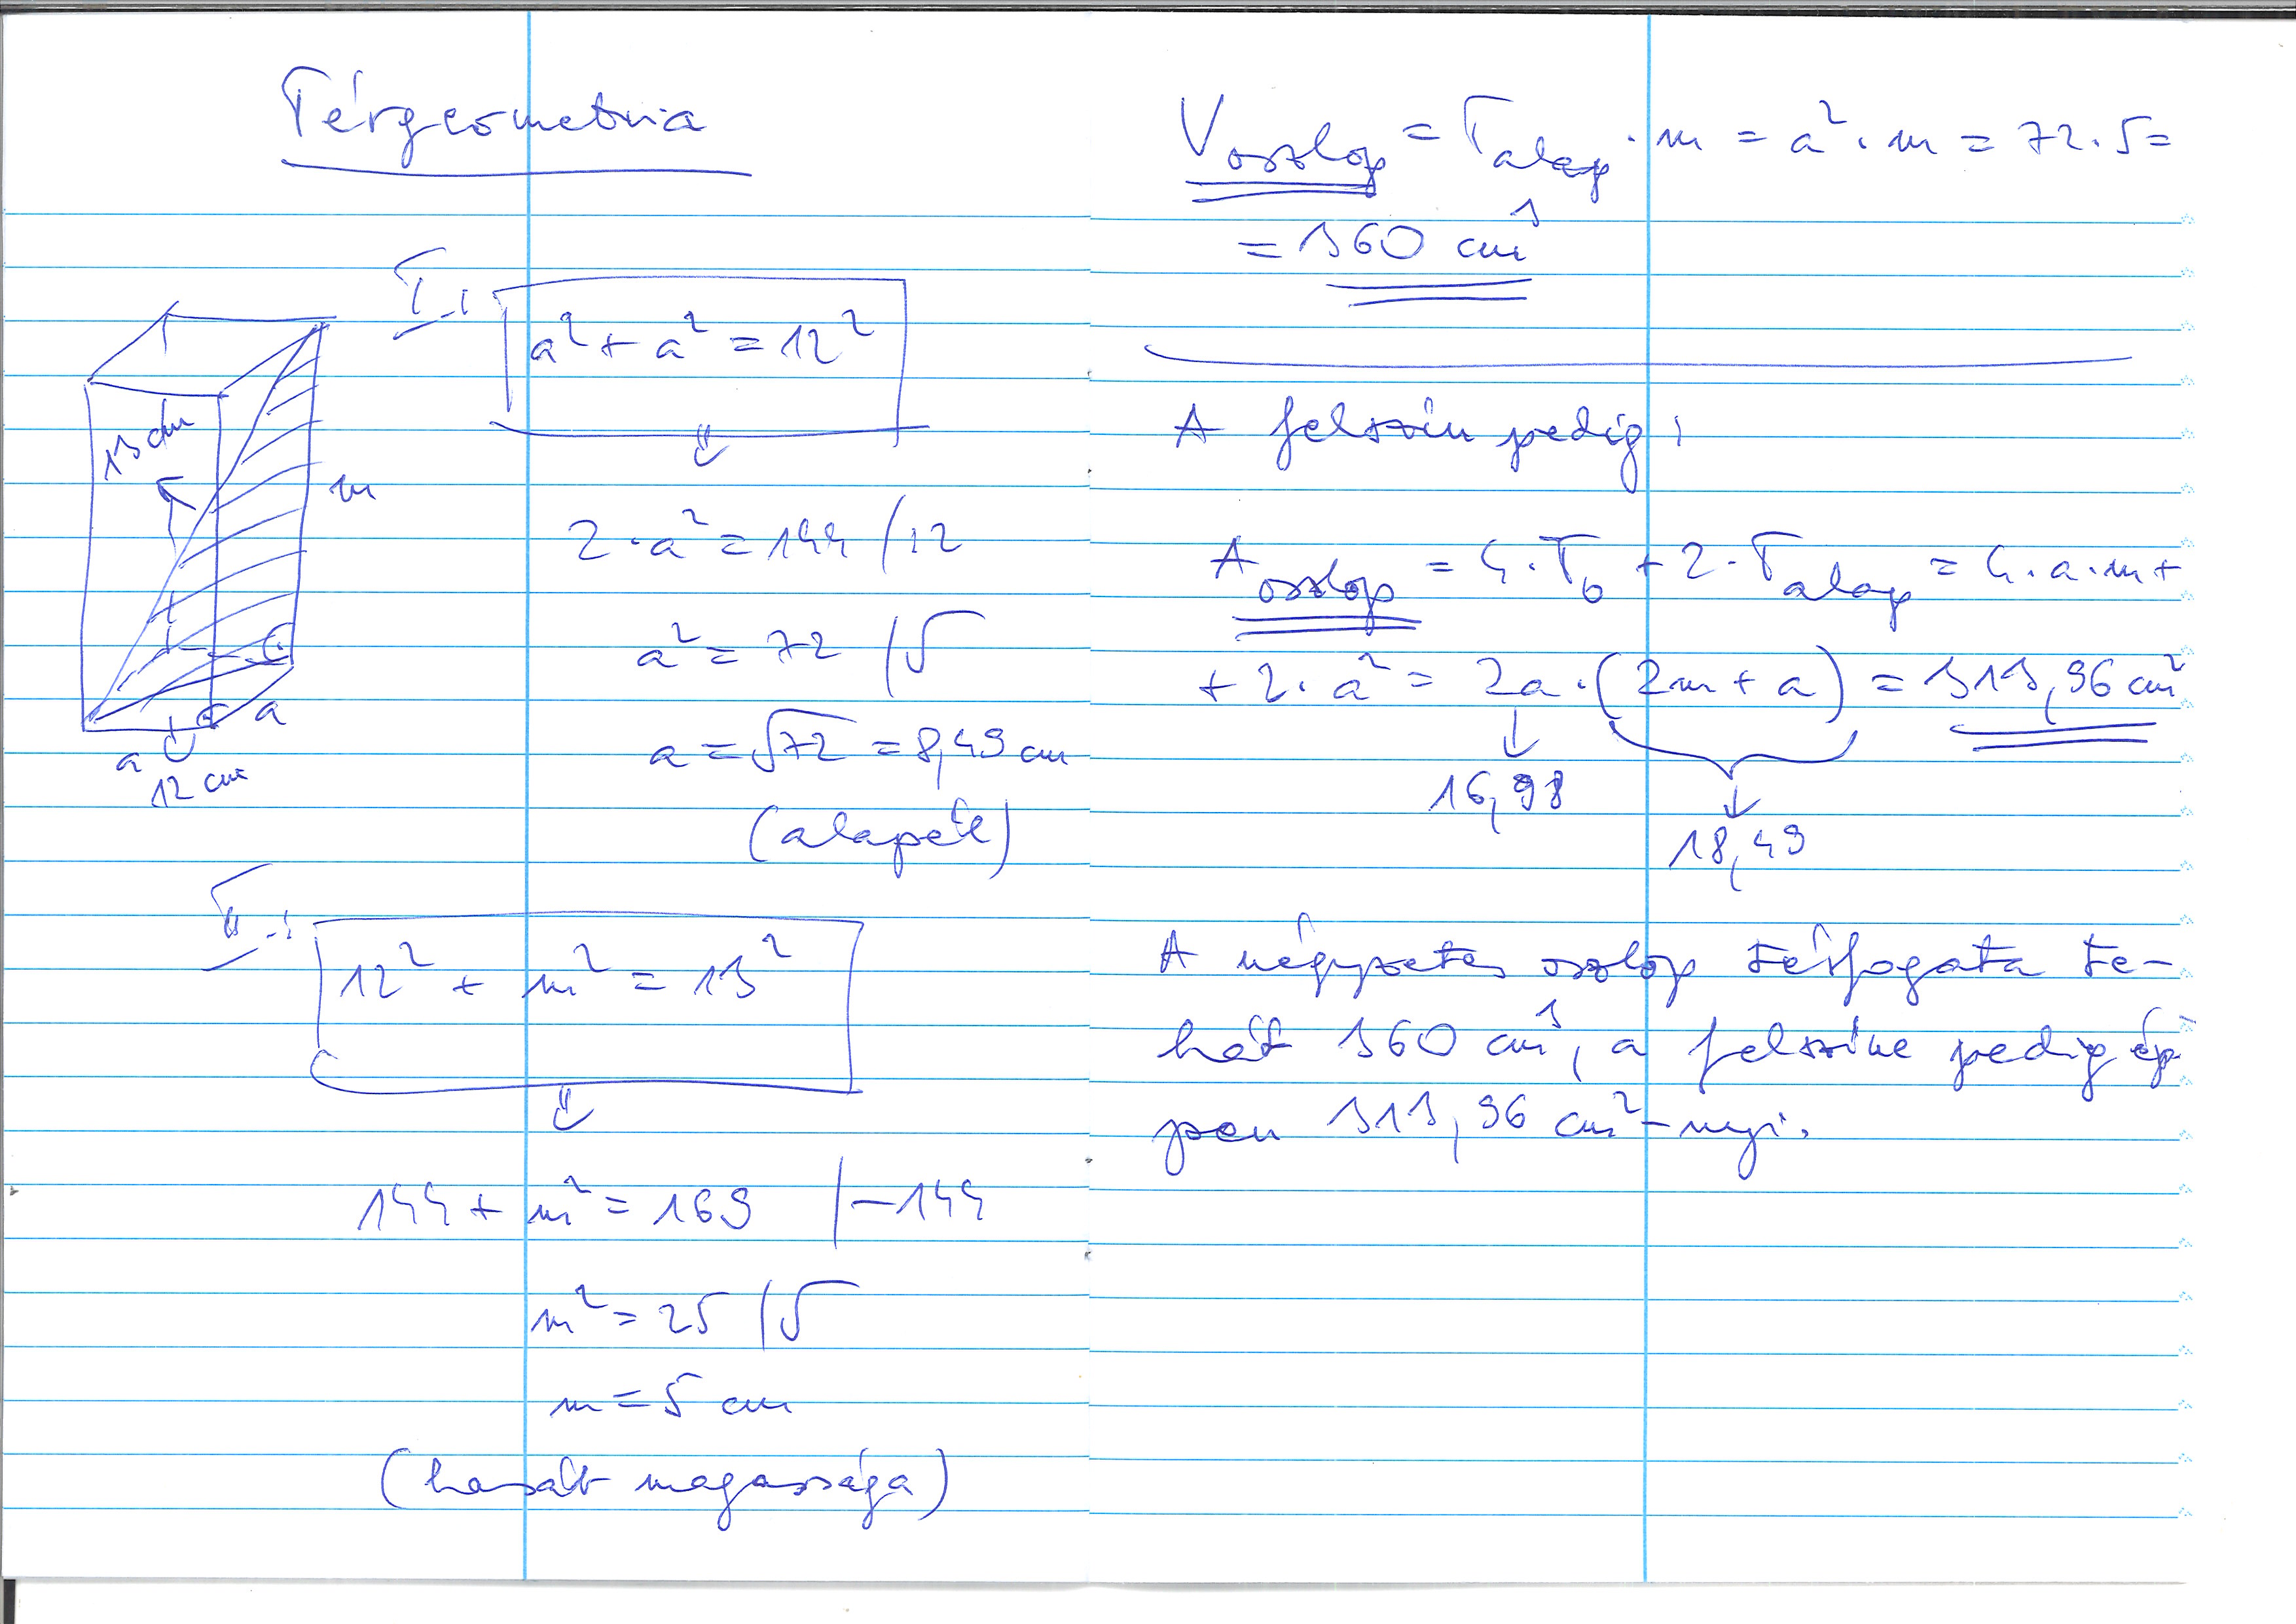 Térgeometria
I.:
a² + a² = 12²
⇓
2·a² = 144 /:2
a² = 72 /√
a = √72 = 8,49 cm
(alapél)
13 cm
m
a
a
12 cm
II.:
12² + m² = 13²
⇓
144 + m² = 169 |-144
m² = 25 /√
m = 5 cm
(hasáb magassága)
V oszlop = T alap · m = a² · m = 72 · 5 =
= 360 cm³
A felszín pedig:
A oszlop = 4·T₀ + 2·T alap = 4·a·m +
+ 2·a² = 2a·(2m + a) = 313,96 cm²
↓
16,98
↓
18,49
A négyzetes oszlop térfogata te-
hát 360 cm³, a felszíne pedig ép
pen 313,96 cm²-nyi.